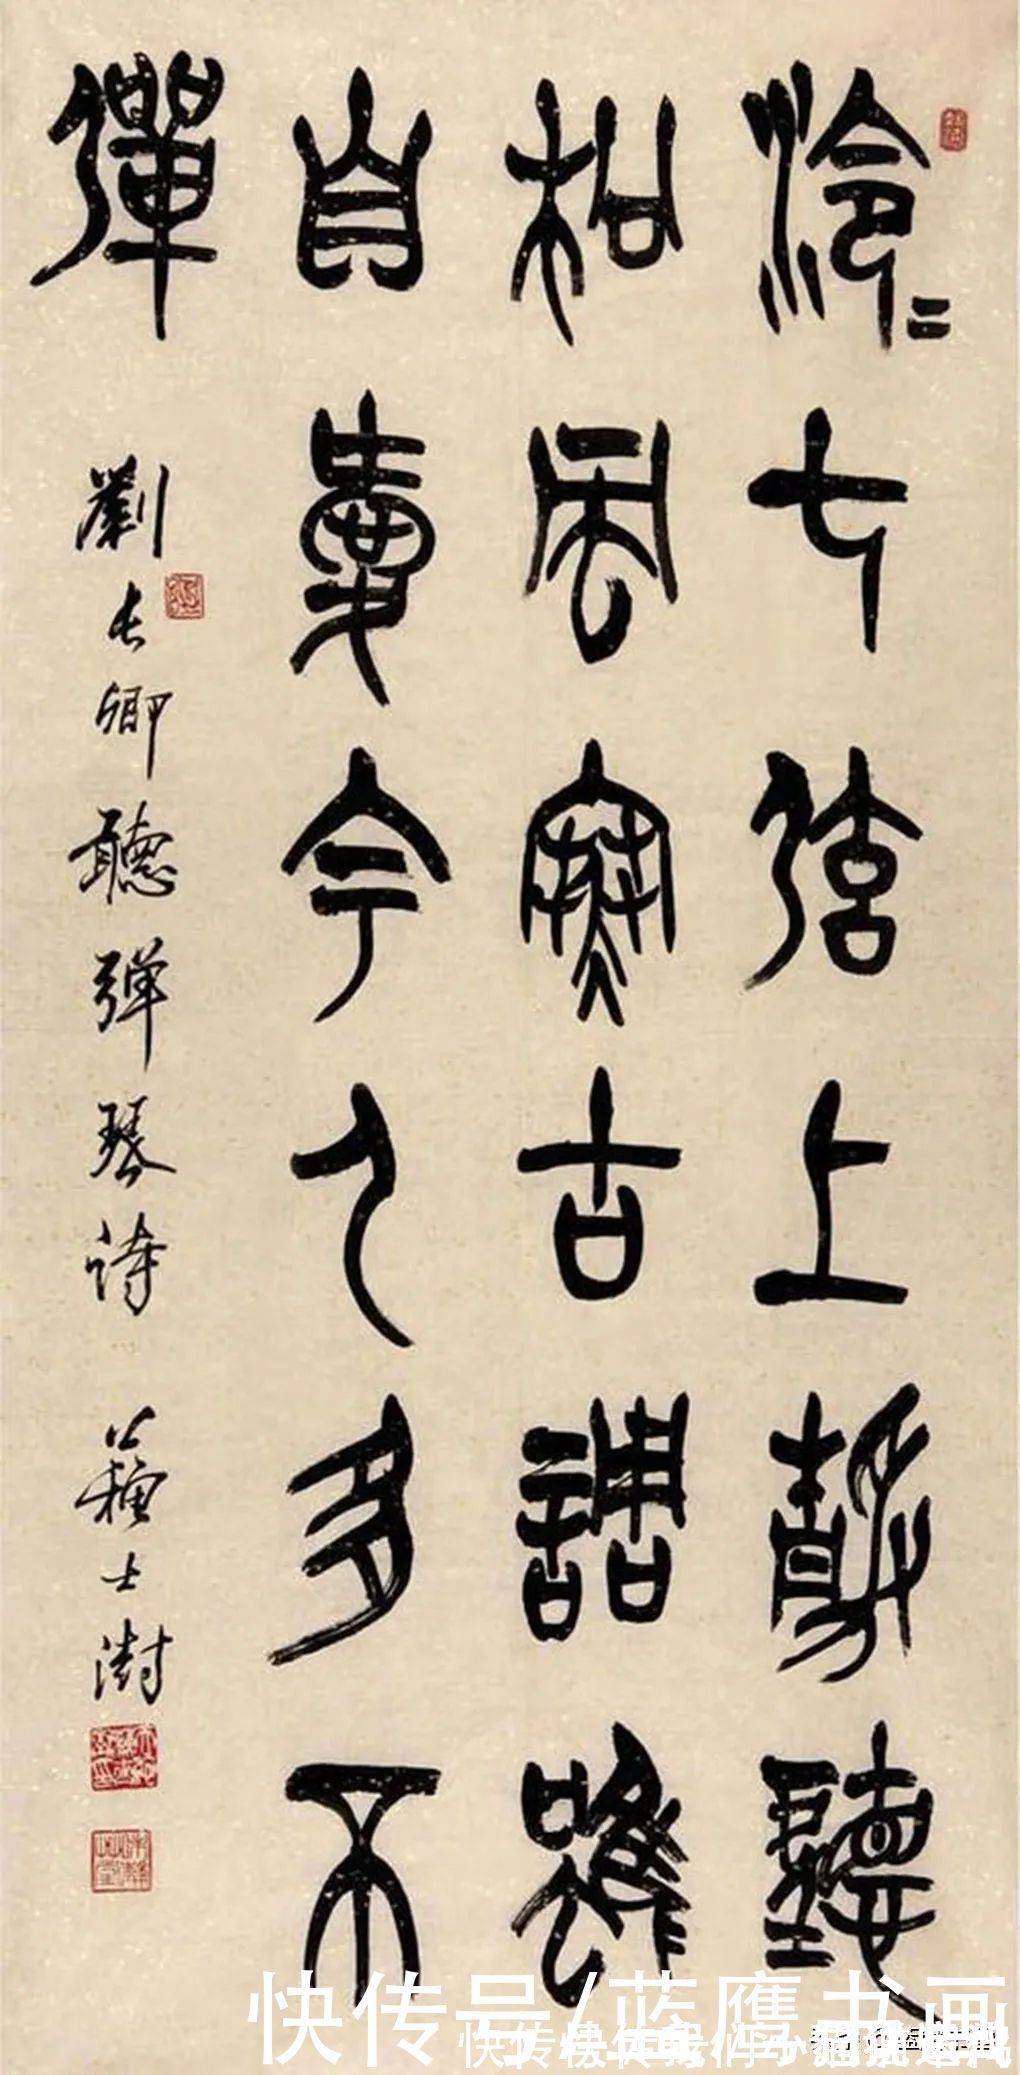 泠泠七弦上靜聽
松風寒古調雖
自愛今人多不
彈
劉長卿聽彈琴詩 蘇士澍
快传号/蓝鹰书画